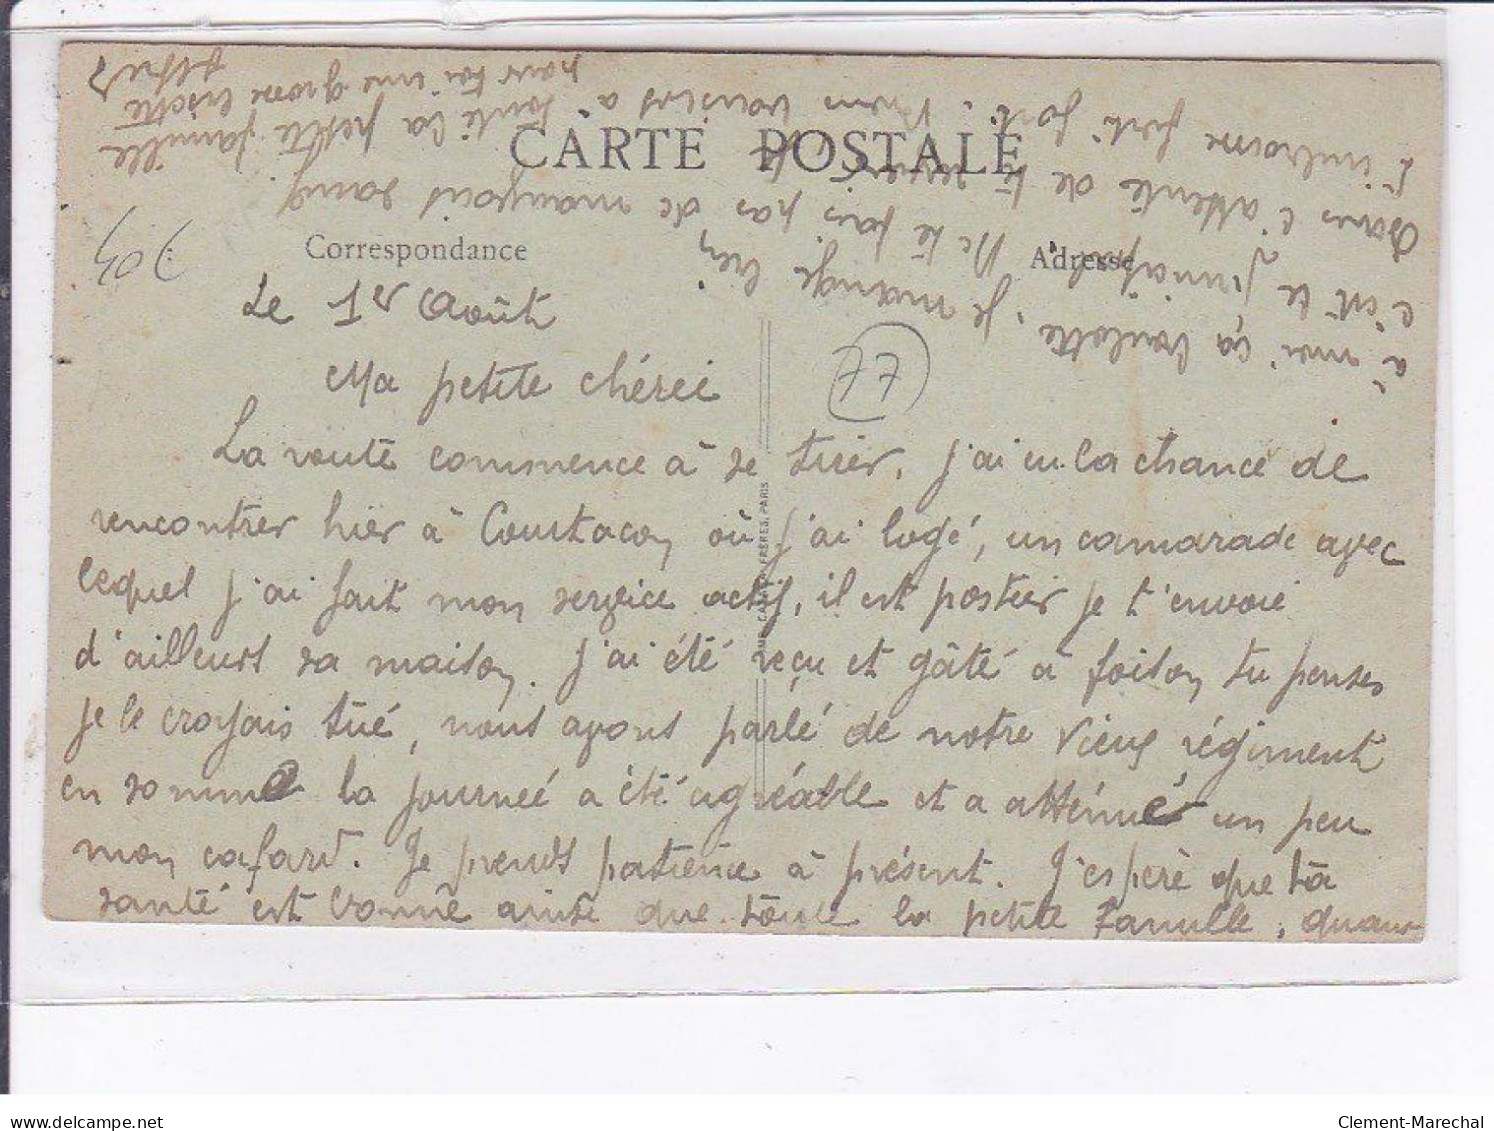 CARTE POSTALE
Correspondance
Adresse
Le 1er Août
Ma petite chérie
La route commence à se tirer, j'ai eu la chance de
rencontrer hier à Courtacon où j'ai logé, un camarade avec
lequel j'ai fait mon service actif, il est postier je t'envoie
d'ailleurs sa maison. J'ai été reçu et gâté à foison tu penses
je le croyais tué, nous avons parlé de notre vieux régiment
en somme la journée a été agréable et a atténué un peu
mon cafard. Je prends patience à présent. J'espère que ta
santé est bonne ainsi que toute la petite famille, quant
à moi ça boulotte, je mange bien
c'est le principal. Ne te fais pas de mauvais sang.
Dans l'attente de te revoir
t'embrasse fort fort. Mon à toute la petite famille
pour toi une grosse bisette
Alfred
77
CARTE FRÈRES, PARIS
Clement-Marechal
delcampe.net